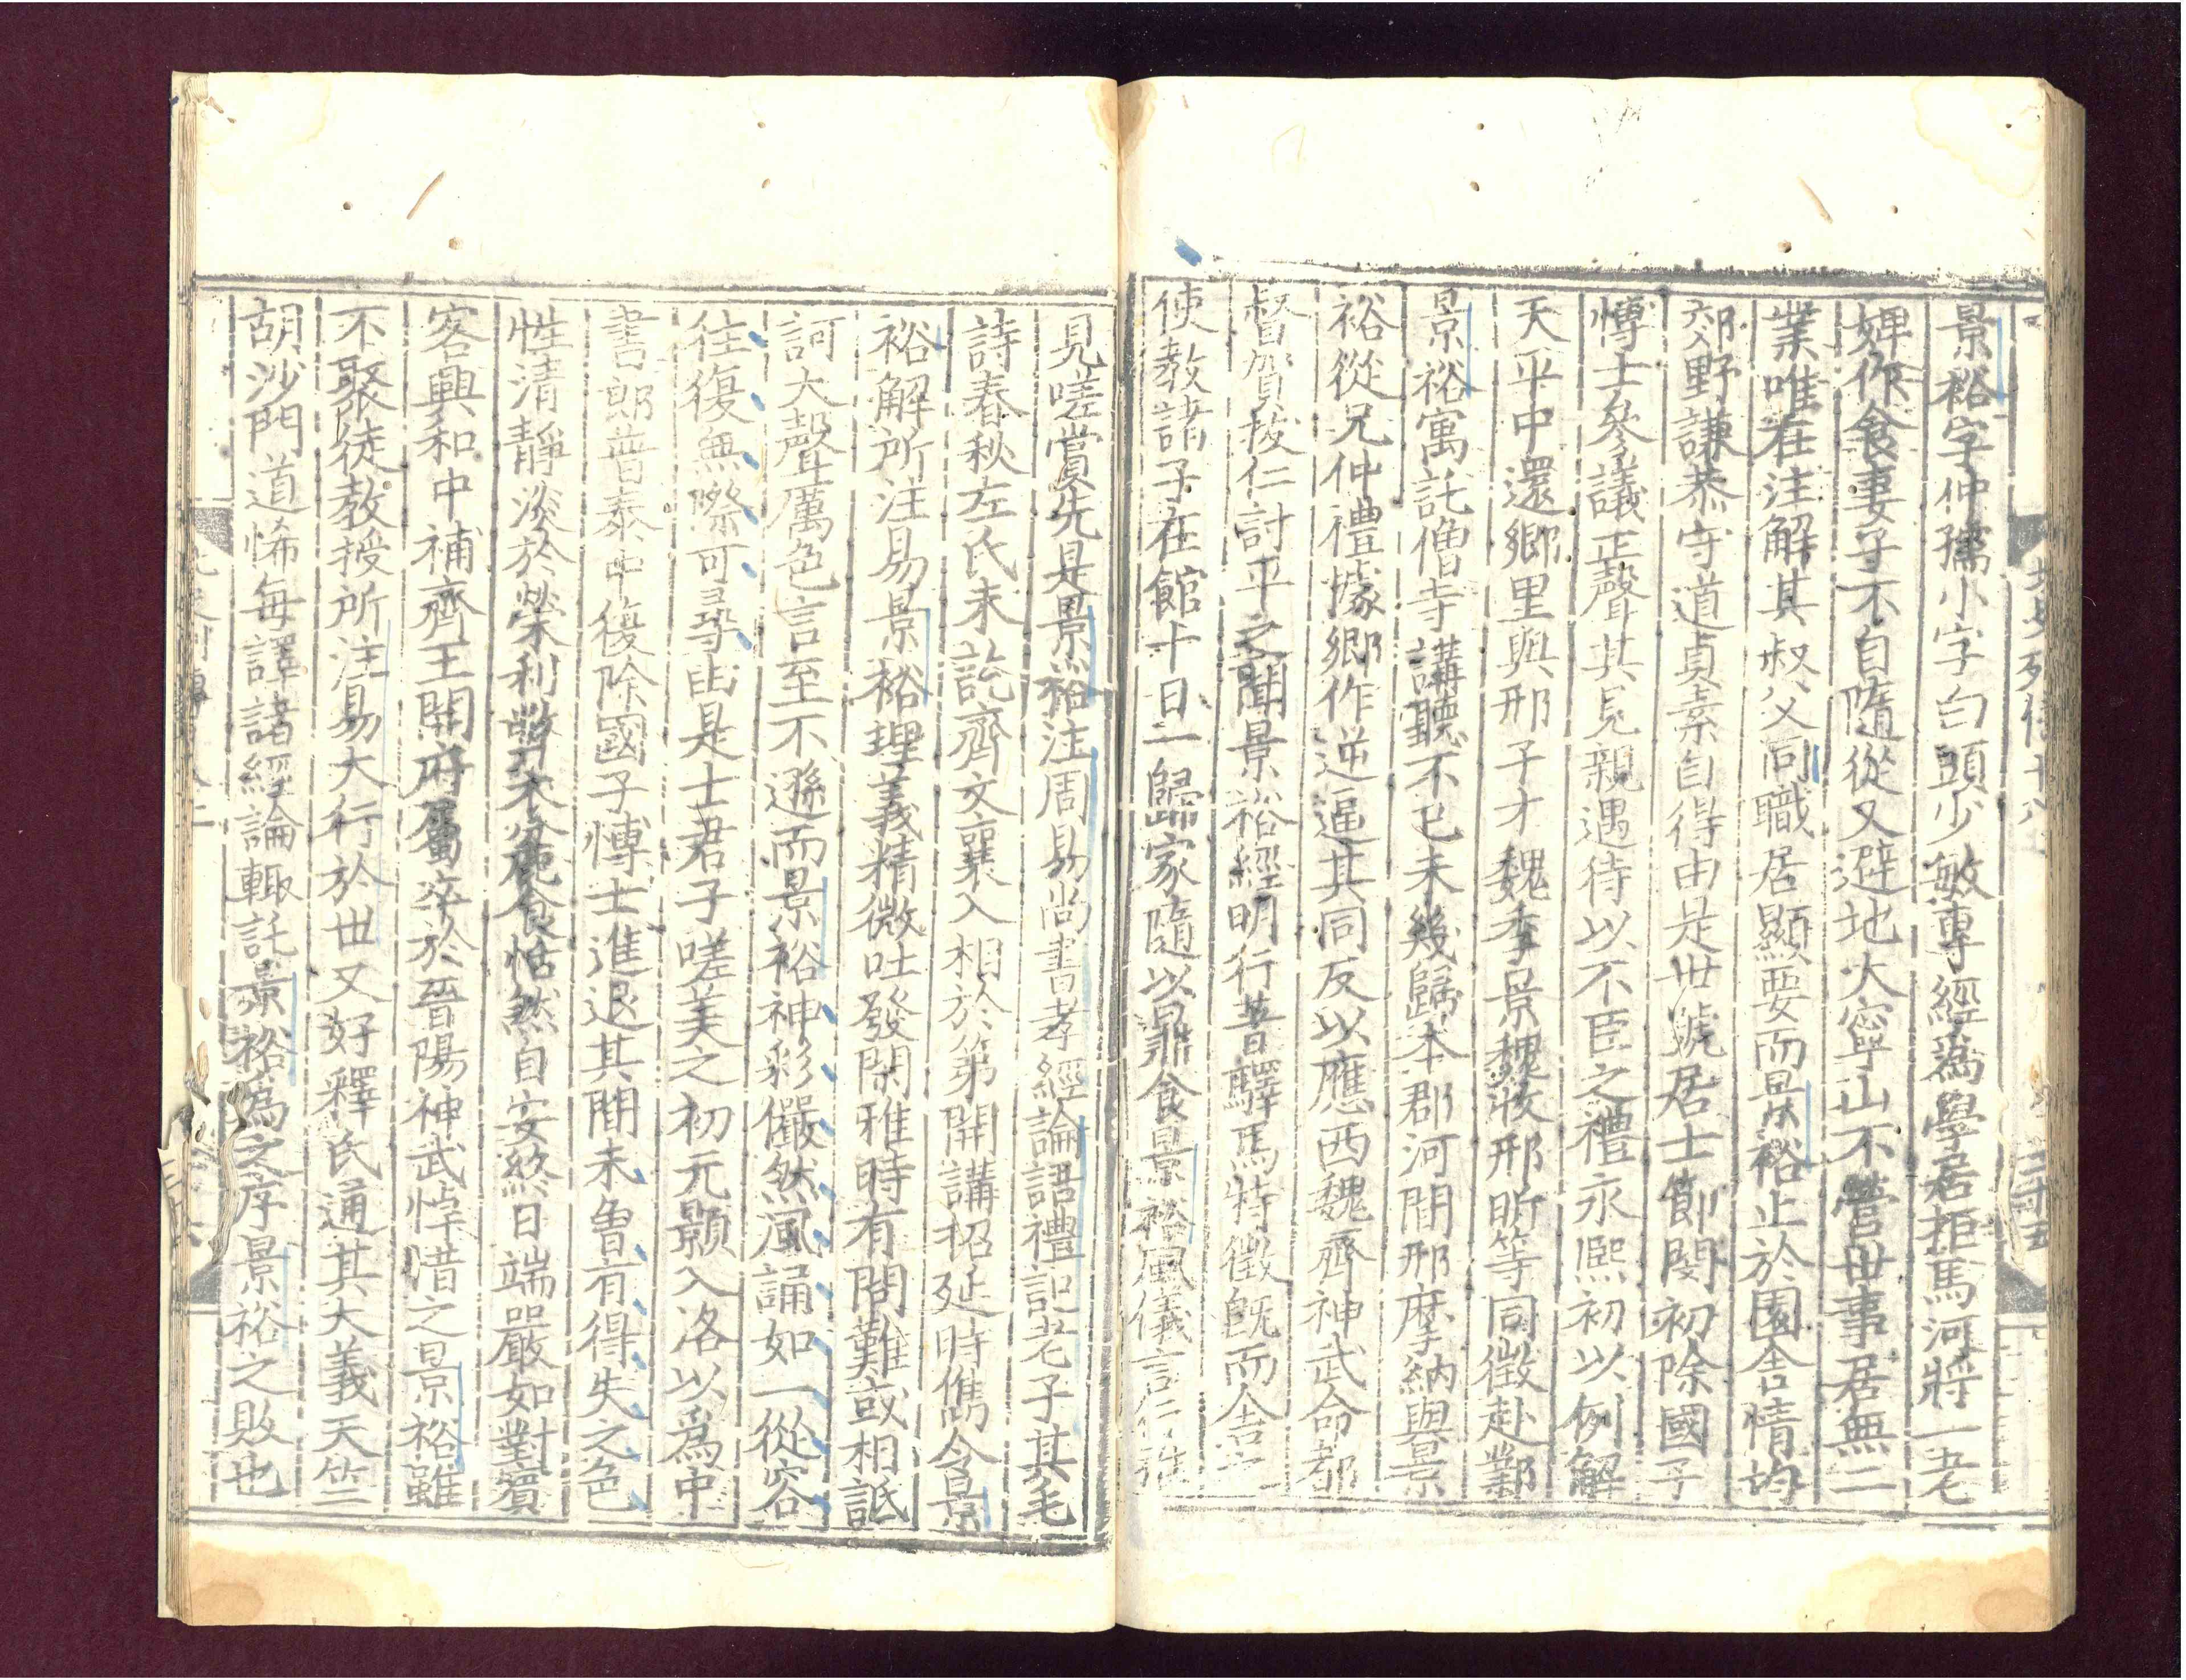 北史列傳十八
二十五
景裕字仲孺小字白頭少敏專經爲學居拒馬河將一老
婢作食妻子不自隨從又避地大寧山不營世事居無二
業唯在注解其叔父同職居顯要而景裕止於園舍情均
郊野謙恭守道貞素自得由是世號居士節閔初除國子
博士參議正聲其見親遇待以不臣之禮永熙初以例解
天平中還鄉里與邢子才魏季景魏收邢昕等同徵赴鄴
景裕寓託僧寺講聽不已未幾歸本郡河間邢摩納與景
裕從兄仲禮據鄉作逆逼其同反以應西魏齊神武命都
督賀拔仁討平之聞景裕經明行著驛馬特徵旣而舍之
使教諸子在館十日一歸家隨以鼎食景裕風儀言行雅
見嗟賞先是景裕注周易尚書孝經論語禮記老子其毛
詩春秋左氏未訖齊文襄入相於第開講招延時儁令景
裕解所注易景裕理義精微吐發閑雅時有問難或相詆
訶大聲厲色言至不遜而景裕神彩儼然風誦如一從容
往復無際可尋由是士君子嗟美之初元顥入洛以爲中
書郎普泰中復除國子博士進退其間未曾有得失之色
性清靜淡於榮利弊衣麁食恬然自安終日端嚴如對賓
客興和中補齊王開府屬卒於晉陽神武悼惜之景裕雖
不聚徒教授所注易大行於世又好釋氏通其大義天竺
胡沙門道悕每譯諸經論輙託景裕爲之序景裕之敗也